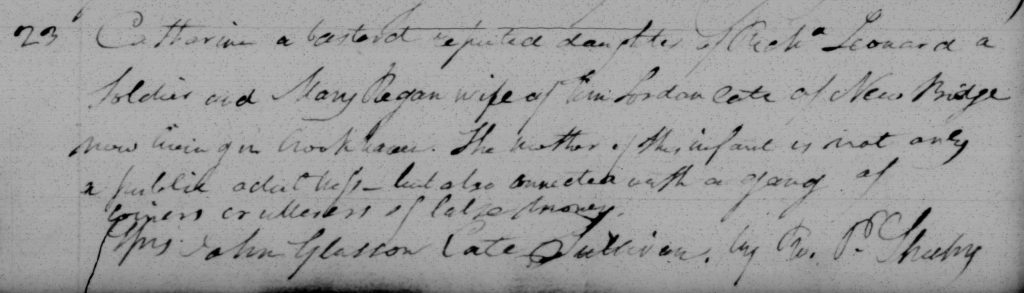 23 Catherine a bastard reputed daughter of Richd Leonard a
Soldier and Mary Regan wife of Tim Jordan late of New Bridge
now living in Crookhaven. The mother of this infant is not only
a public adultress - but also connected with a gang of
coiners or utterers of false money.
Sprs John Glasson Cate Sullivan. by Rv. P. Sheehy